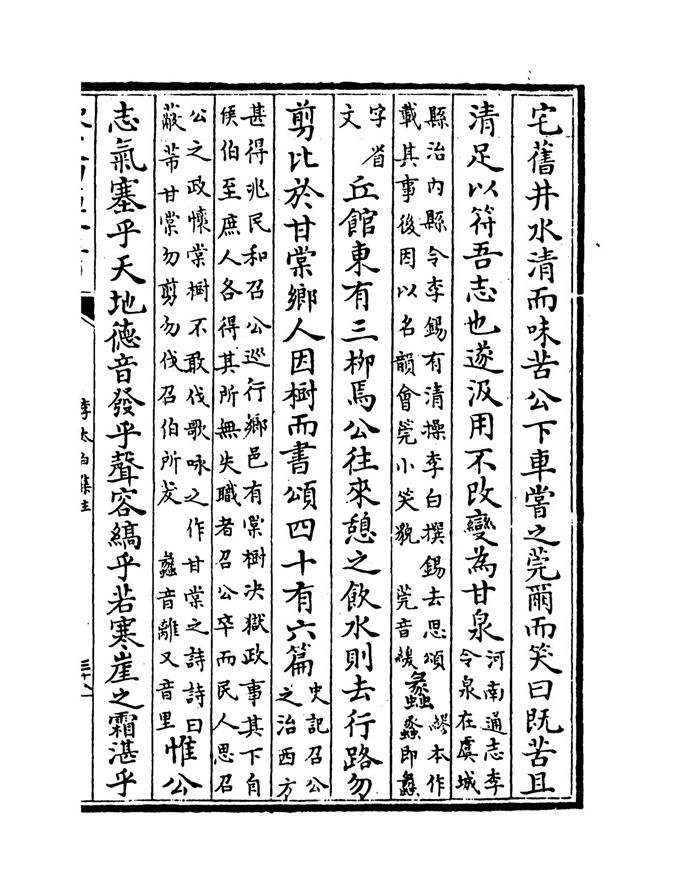 宅舊井水清而味苦公下車嘗之莞爾而笑曰既苦且
清足以符吾志也遂汲用不改變為甘泉河南通志李
令泉在虞城
縣治内縣令李錫有清操李白撰錫去思頌
載其事後因以名韻會莞小笑貌　莞音緩蠡繆本作
螽即蠡
字省
文丘館東有三栁焉公往來憩之飲水則去行路勿
剪比於甘棠鄉人因樹而書頌四十有六篇史記召公
之治西方
甚得兆民和召公巡行鄉邑有棠樹決獄政事其下自
侯伯至庶人各得其所無失職者召公卒而民人思召
公之政懷棠樹不敢伐歌咏之作甘棠之詩詩曰
蔽芾甘棠勿剪勿伐召伯所茇　蠡音離又音里惟公
志氣塞乎天地德音發乎聲容縞乎若寒崖之霜湛乎
李太白集注
三十八